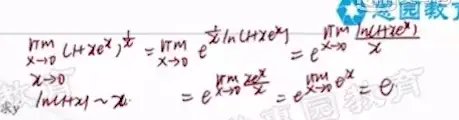 lim x→0 (1+xe^x)^{1/x} = lim x→0 e^{1/x ln(1+xe^x)} = e^{lim x→0 ln(1+xe^x)/x}
x→0
ln(1+x) ~ x. = e^{lim x→0 xe^x/x} = e^{lim x→0 e^x} = e